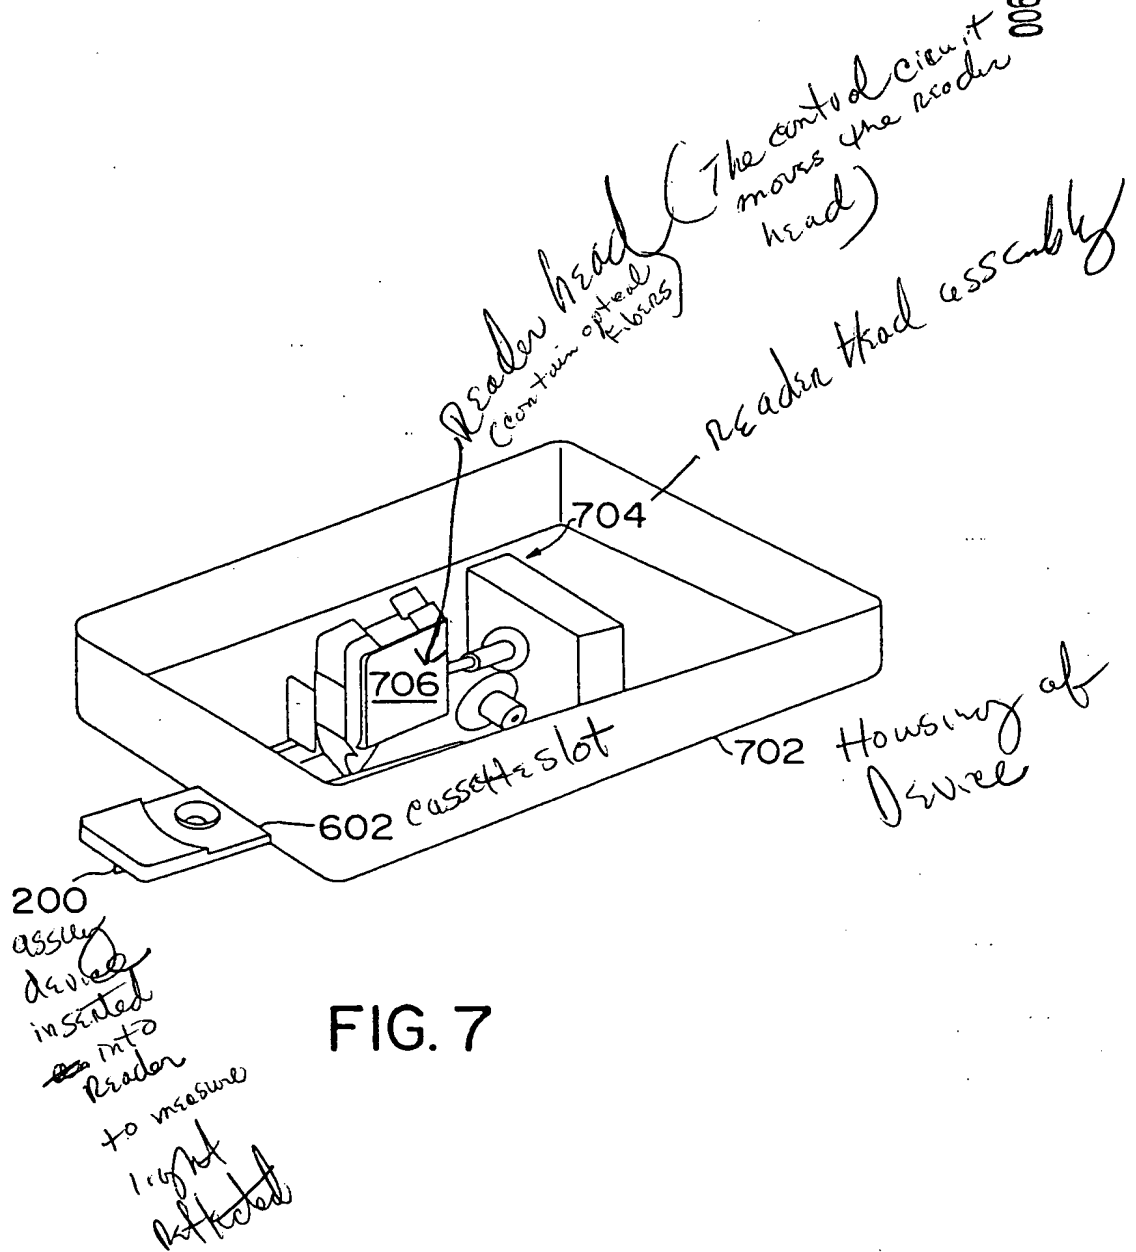 006
(The control circuit
moves the reader
head)
Reader head
(contain optical
fibers)
Reader Head assembly
704
706
702 Housing of
Device
602 cassette slot
200
assay
device
inserted
into
Reader
to measure
light
Reflected
FIG. 7